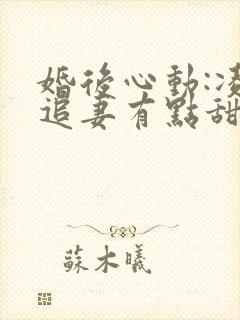 婚後心動:凌
追妻有點甜
蘇木曦